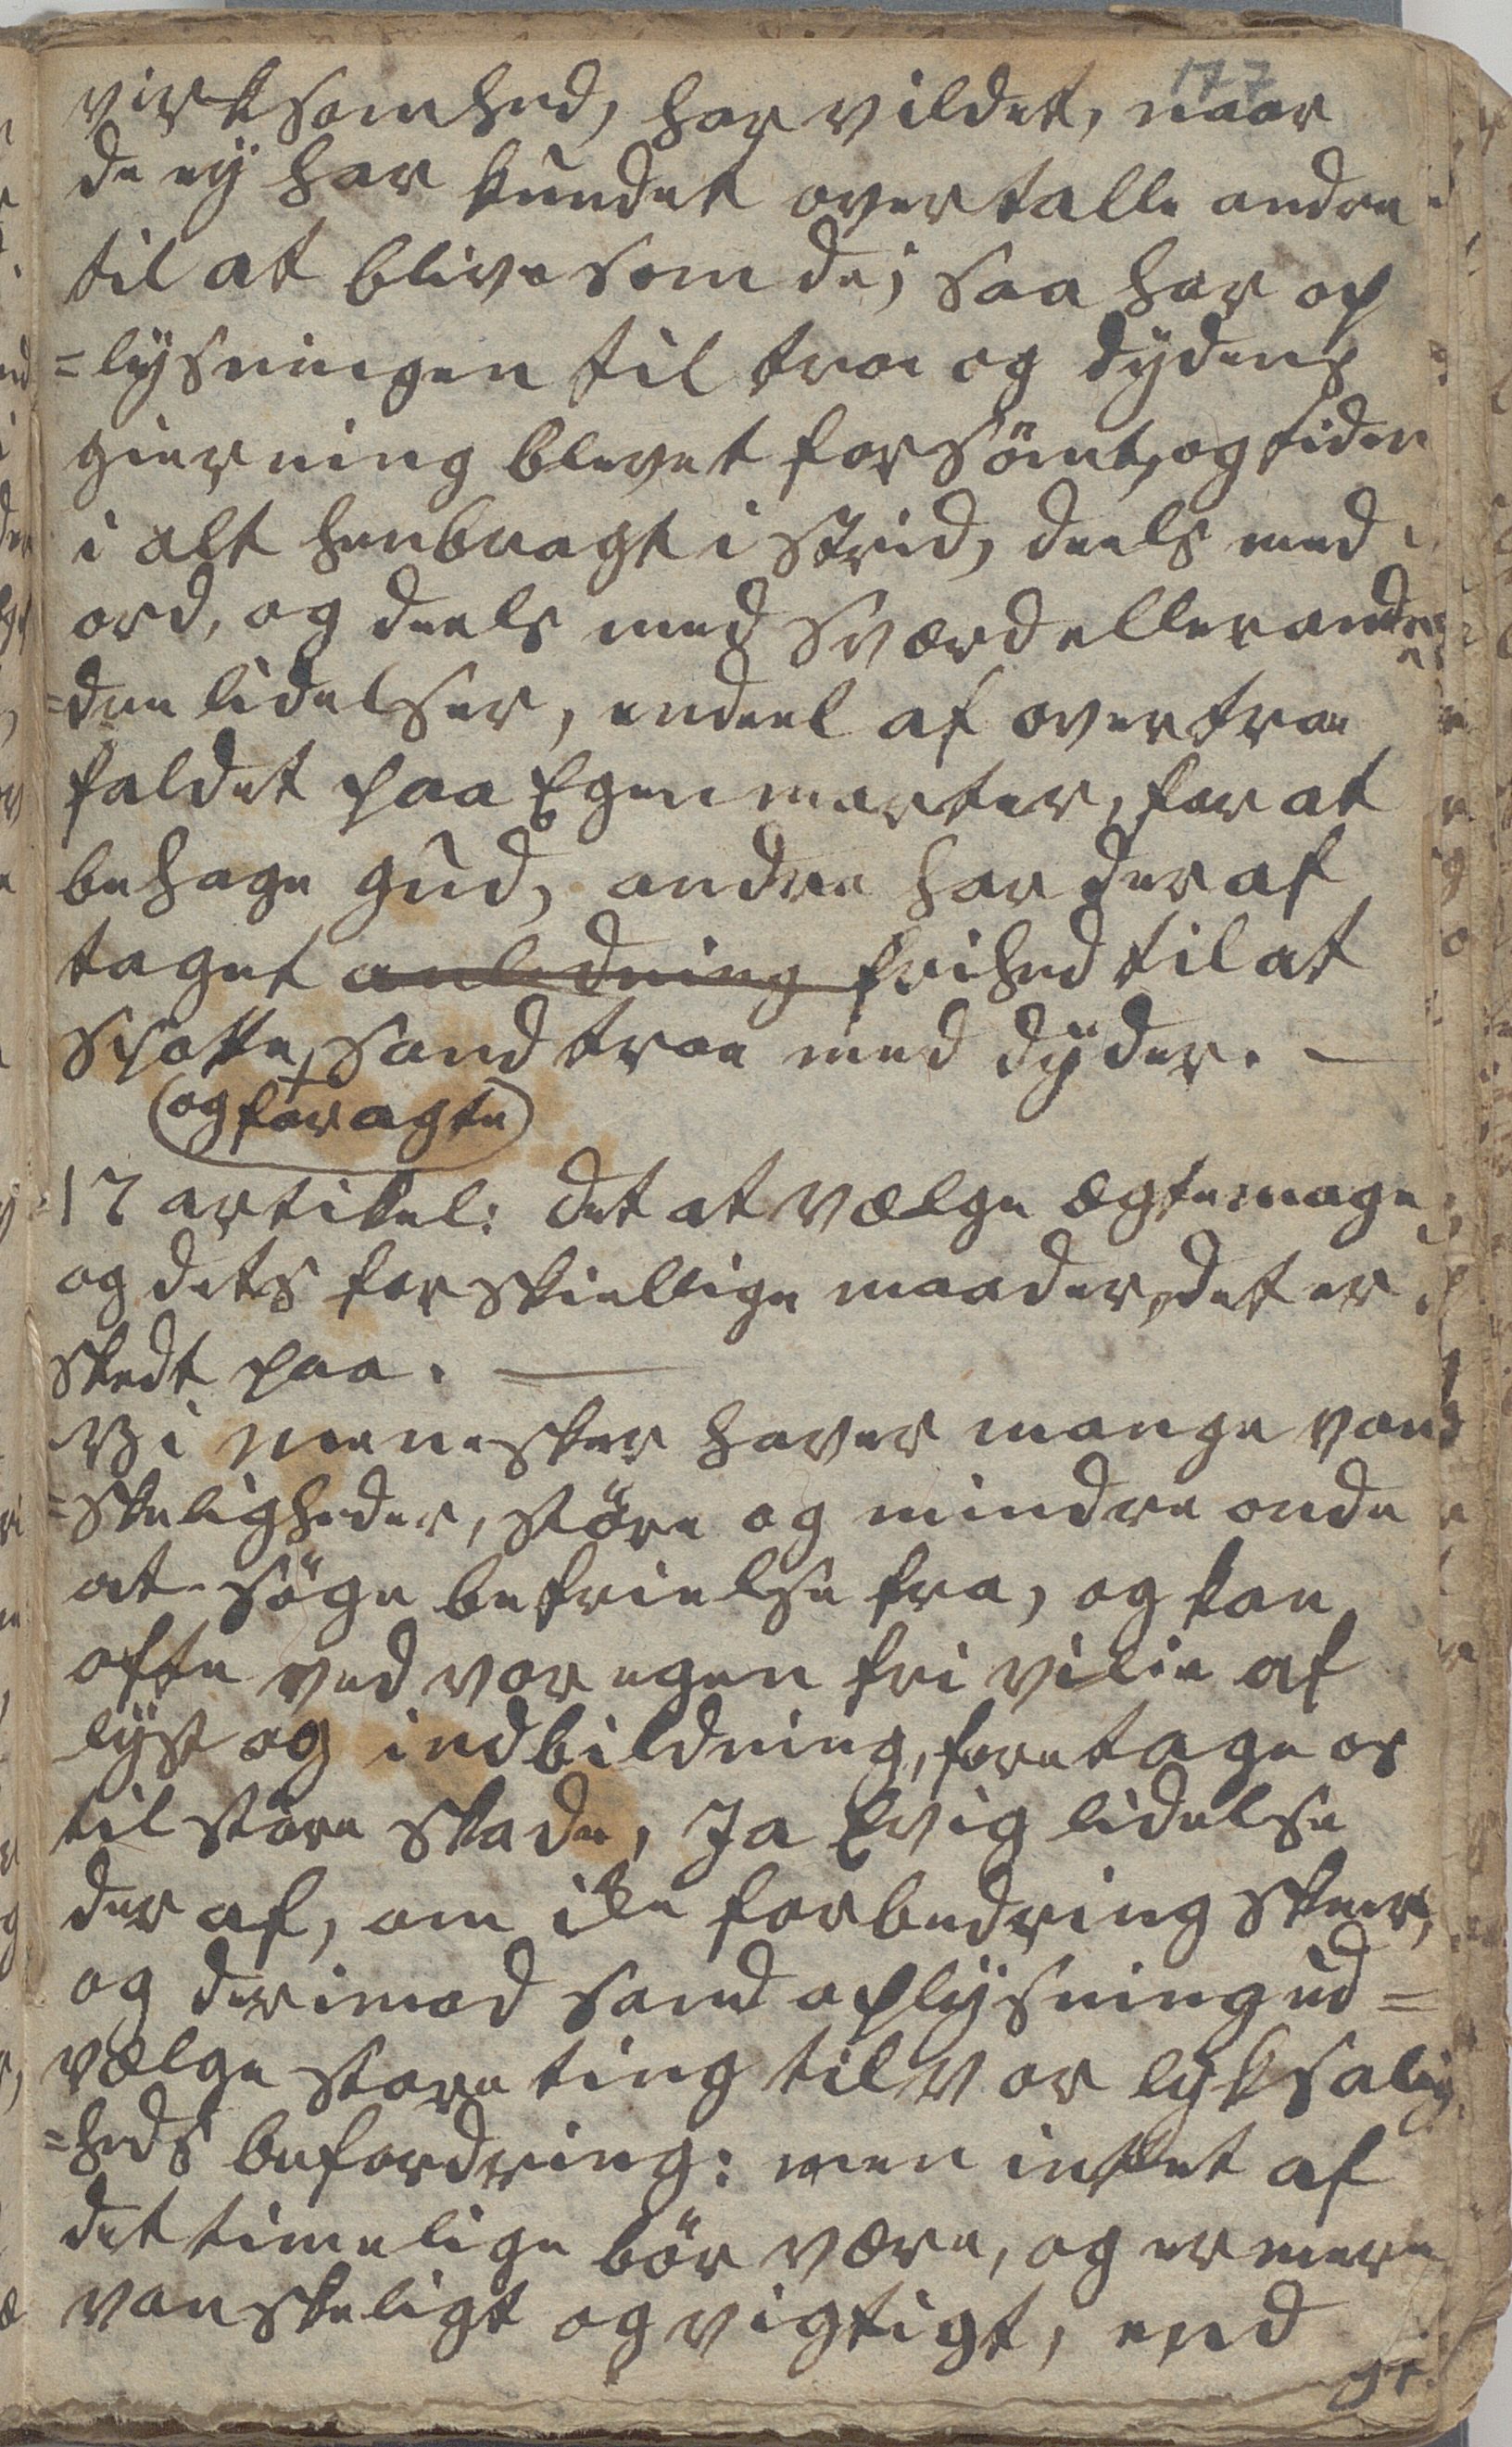 177
virksomhed, har vildet, naar
de ej har kundet overtalle andre
til at blive som de; saa har op
=lysningen til troe og dydens
gierning blevet forsömt, og tiden
i alt henbragt i strid, deels med
ord, og deels med sværd eller andre
=dne lidelser, endeel af overtroe
faldet paa Egen marter, for at
behage gud, andre har deraf
taget anledning frihed til at
spotte, sand troe med dyder. —
og foragte
17 artikel: det at vælge ægtemage,
og dets forskiellige maader, det er
skedt paa. —
Vi menesker haver mange van
=skeligheder, störe og mindre onde
at söge befrielse fra, og kan
ofte ved vor egen fri vilie af
lyst og indbildning, foretage os
til store skade, Ja Evig lidelse
der af, om ike forbedring skeer,
og derimod sand oplysning ud=
vælge store ting til vor lyksalig
=heds befordring: men intet af
det timelige bör være, og er mere
vanskeligt og vigtigt, end